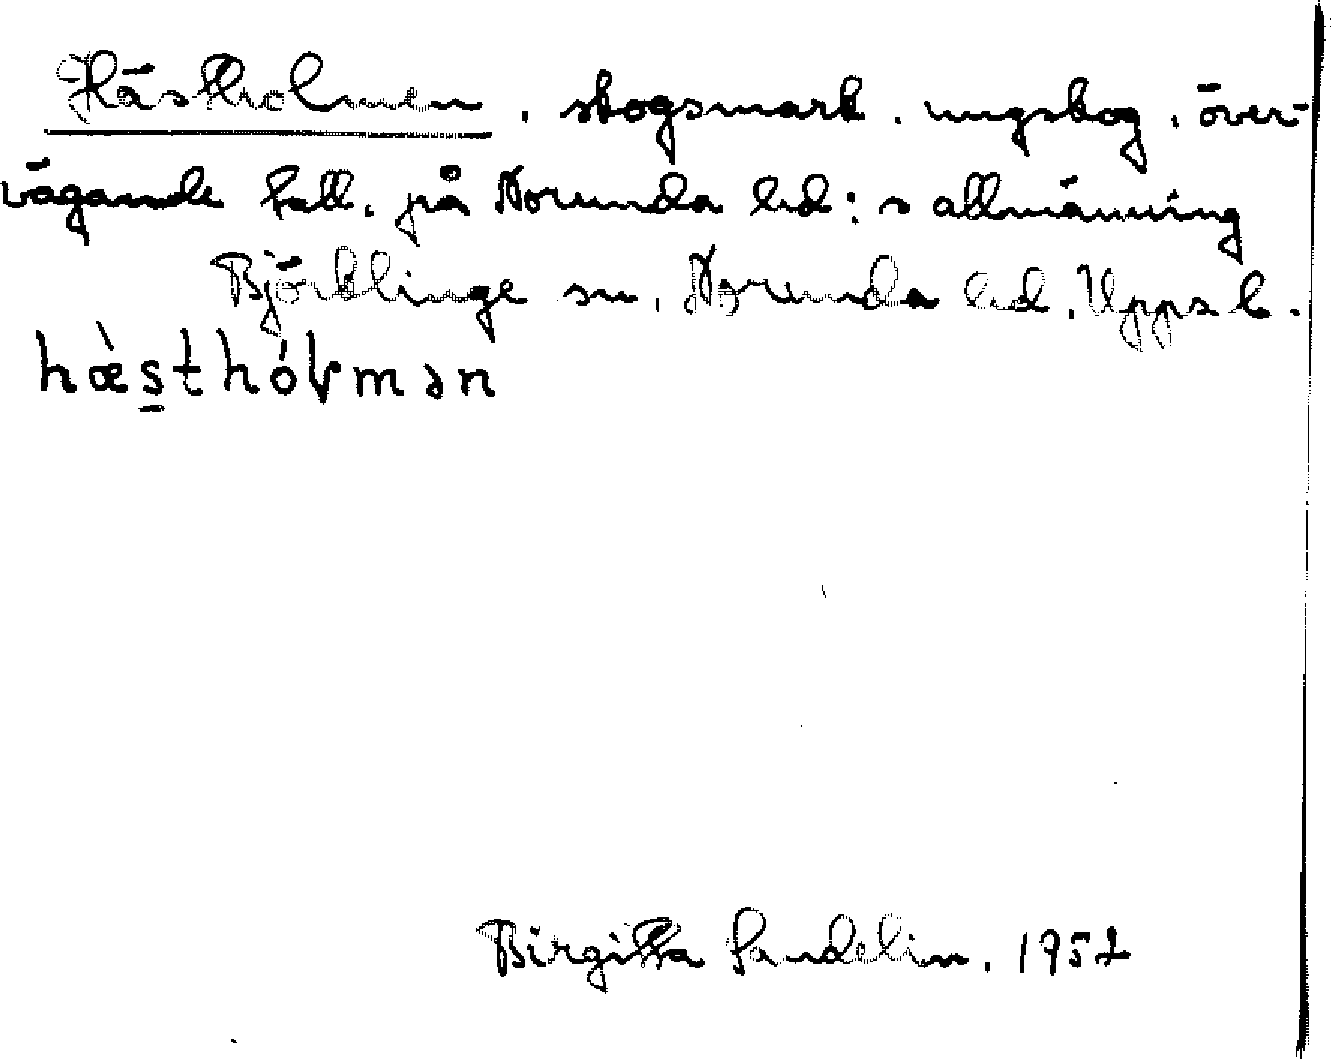 Hästholmen, skogsmark, ungskog, över-
vägande tall, på Norunda hd:s allmänning
Björklinge sn, Norunda hd, Upps l.
hæ̀s̠thóɫmən
Birgitta Sandelin. 1952